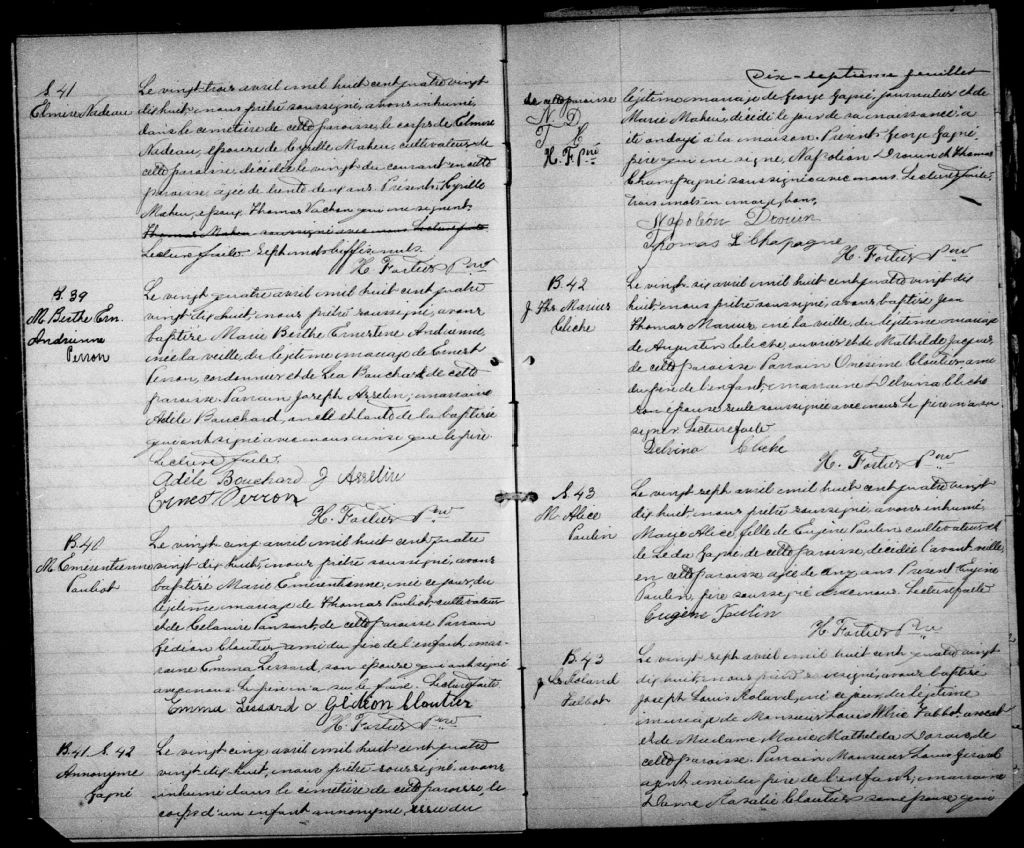 S. 41
Elmire Nadeau
Le vingt trois avril mil huit cent quatre vingt
dix huit, nous prêtre soussigné, avons inhumé,
dans le cemetière de cette paroisse, le corps de Elmire
Nadeau, épouse de Cyrille Maheu, cultivateur de
cette paroisse, décédée le vingt du courant en cette
paroisse, agée de trente deux ans. Présents, Cyrille
Maheu, époux, Thomas Vachon qui ne signent.
Thomas Maheu soussigné avec nous Lecture faite
Lecture faite. Sept mots biffés nuls.
H. Fortier Ptre
B. 39
M. Berthe Ern.
Andrienne
Perron
Le vingt quatre avril mil huit cent quatre
vingt dix huit, nous prêtre soussigné, avons
baptisé Marie Berthe Ernestine Andienne,
née la veille du légitime mariage de Ernest
Perron, cordonnier et de Léa Bouchard de cette
paroisse. Parrain Joseph Asselin, marraine
Adèle Bouchard, oncle et tante de la baptisée
qui ont signé avec nous ainsi que le père.
Lecture faite.
Adèle Bouchard J Asselin
Ernest Perron
H. Fortier Ptre
B. 40
M. Emérentienne
Pouliot
Le vingt cinq avril mil huit cent quatre
vingt dix huit, nous prêtre soussigné, avons
baptisé Marie Emérentienne, née ce jour, du
légitime mariage de Thomas Pouliot, cultivateur
et de Célanire Pansant, de cette paroisse Parrain
Gédéon Cloutier ami du père de l'enfant, mar-
raine Emma Lessard, son épouse qui ont signé
avec nous. Le père n'a su le faire. Lecture faite
Emma Lessard & Gédéon Cloutier
H. Fortier Ptre
B. 41 S. 42
Annonyme
Gagné
Le vingt cinq avril mil huit cent quatre
vingt dix huit, nous prêtre soussigné, avons
inhumé dans le cemetière de cette paroisse, le
corps d'un enfant annonyme, issu du
Dix-septième feuillet
de cette paroisse
N. D.
T. C.
H. F. Ptre
légitime mariage de George Gagné, journalier et de
Marie Maheu, décédé le jour de sa naissance a
été ondoyé à la maison. Présents George Gagné,
père qui ne signe, Napoléon Drouin et Thomas
Champagne soussigné avec nous. Lecture faite
trois mots en marge, bons.
Napoléon Drouin
Thomas L Chapagne
H. Fortier Ptre
B. 42
J Ths Marius
Cliche
Le vingt-six avril mil huit cent quatre vingt dix
huit, nous prêtre soussigné, avons baptisé Jean
Thomas Marius né la veille, du légitime mariage
de Augustin Cliche, ouvrier et de Mathilde Jacques,
de cette paroisse. Parrain Onésime Cloutier ami
du père de l'enfant, marraine Delvina Cliche
son épouse seule soussignée avec nous Le père n'a su
signer Lecture faite
Delvina Cliche
H. Fortier Ptre
S. 43
M. Alice
Poulin
Le vingt sept avril mil huit cent quatre vingt
dix huit, nous prêtre soussigné, avons inhumé,
Marie Alice, fille de Eugène Poulin cultivateur et
de Léda Gagné de cette paroisse, décédée l'avant veille,
en cette paroisse agée de onze ans. Présent Eugène
Poulin, père soussigné avec nous. Lecture faite
Eugène Poulin
H. Fortier Ptre
B. 43
J Ls Roland
Talbot
Le vingt sept avril mil huit cent quatre vingt
dix huit, nous prêtre soussigné, avons baptisé
Joseph Louis Roland, né ce jour, du légitime
mariage de Monsieur Louis Talbot avocat
et de Madame Marie Mathilda de
cette paroisse. Parrain Monsieur Louis Girard
agent, ami du père de l'enfant, marraine
Dame Rosalie Cloutier son épouse qui